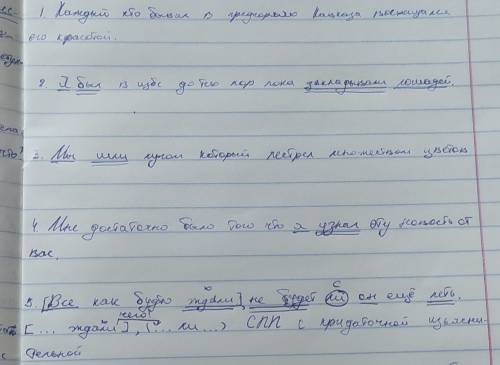 1. Каждый кто бывал в предгорьях Кавказа восхищался
его красотой.
2. Я был в избе до тех пор пока закладывали лошадей.
3. Мы шли лугом который пестрел множеством цветов
4. Мне достаточно было того что я узнал эту новость от
вас.
5. [Все как будто ждали], не будет ли он ещё петь.
чего?
[... ждали], (... ли ...) СПП с придаточной изъясни-
тельной